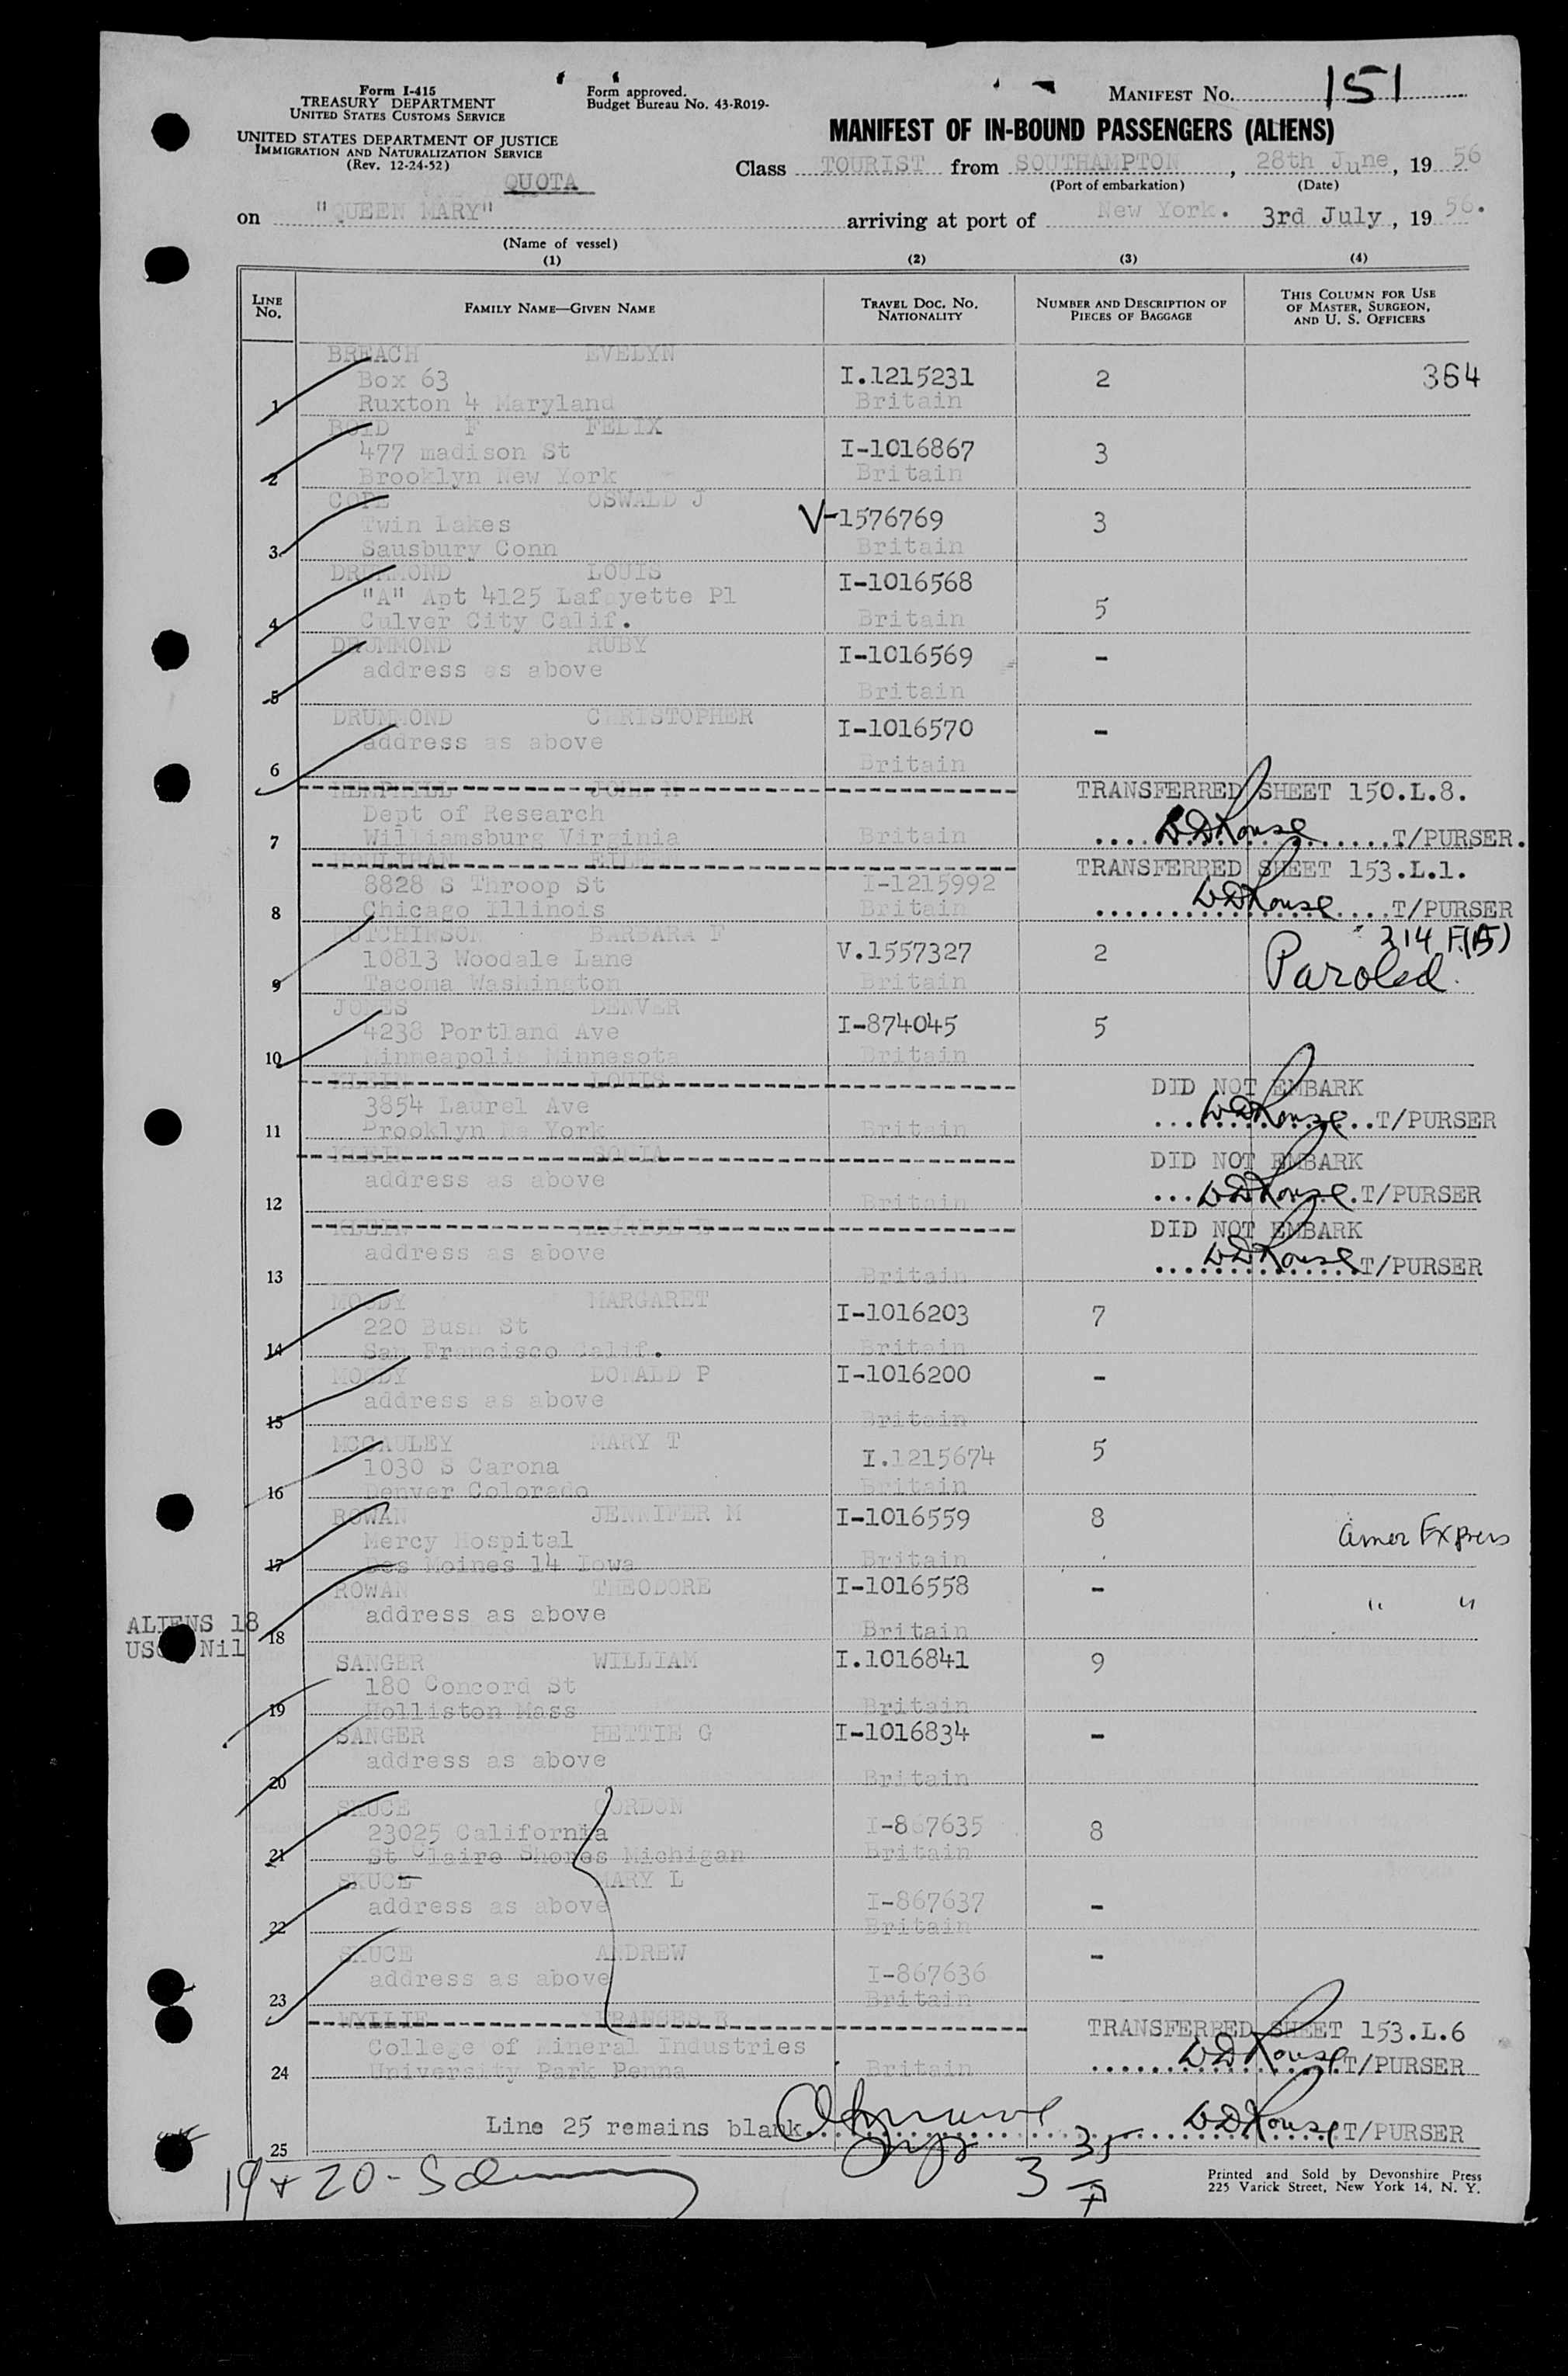 Form I-415
TREASURY DEPARTMENT
UNITED STATES CUSTOMS SERVICE
UNITED STATES DEPARTMENT OF JUSTICE
IMMIGRATION AND NATURALIZATION SERVICE
(Rev. 12-24-52)
QUOTA
Form approved.
Budget Bureau No. 43-R019-
MANIFEST NO. 151
MANIFEST OF IN-BOUND PASSENGERS (ALIENS)
Class TOURIST from SOUTHAMPTON, 28th June, 19 56
(Port of embarkation) (Date)
on "QUEEN MARY" arriving at port of New York. 3rd July, 19 56.
(Name of vessel)
(1) (2) (3) (4)
LINE NO. FAMILY NAME—GIVEN NAME TRAVEL DOC. NO. NATIONALITY NUMBER AND DESCRIPTION OF PIECES OF BAGGAGE THIS COLUMN FOR USE OF MASTER, SURGEON, AND U. S. OFFICERS
BREACH EVELYN
Box 63 I.1215231 2 364
1 Ruxton 4 Maryland Britain
F FELIX
477 madison St I-1016867 3
2 Brooklyn New York Britain
COPE OSWALD J
Twin Lakes V-1576769 3
3 Sausbury Conn Britain
DRUMMOND LOUIS I-1016568
"A" Apt 4125 Lafayette Pl 5
4 Culver City Calif. Britain
DRUMMOND RUBY I-1016569 -
address as above
5 Britain
DRUMMOND CHRISTOPHER I-1016570 -
address as above
6 Britain
HEMPHILL JOHN M TRANSFERRED SHEET 150.L.8.
Dept of Research
7 Williamsburg Virginia Britain T/PURSER.
HOULIHAN TRANSFERRED SHEET 153.L.1.
8828 S Throop St I-1215992
8 Chicago Illinois Britain T/PURSER
HUTCHINSON BARBARA F 314 F.
10813 Woodale Lane V.1557327 2 Paroled.
9 Tacoma Washington Britain
JONES DENVER I-874045 5
4238 Portland Ave
10 Minneapolis Minnesota Britain
KLEIN LOUIS DID NOT EMBARK
3854 Laurel Ave
11 Brooklyn Ne York Britain T/PURSER
KLEIN SONIA DID NOT EMBARK
address as above
12 Britain T/PURSER
KLEIN DID NOT EMBARK
address as above
13 Britain T/PURSER
MOODY MARGARET I-1016203 7
220 Bush St
14 San Francisco Calif. Britain
MOODY DONALD P I-1016200 -
address as above
15 Britain
MCCAULEY MARY T I.1215674 5
1030 S Carona
16 Denver Colorado Britain
ROWAN JENNIFER M I-1016559 8
Mercy Hospital Amer Express
17 Des Moines 14 Iowa Britain
ROWAN THEODORE I-1016558 -
address as above " "
ALIENS 18
18 Britain
Nil
SANGER WILLIAM I.1016841 9
180 Concord St
19 Holliston Mass Britain
SANGER HETTIE G I-1016834 -
address as above
20 Britain
SKUCE GORDON
23025 California I-867635 8
21 St Claire Shores Michigan Britain
SKUCE MARY L
address as above I-867637 -
22 Britain
SKUCE ANDREW -
address as above I-867636
23 Britain
WYLLIE FRANCES R TRANSFERRED SHEET 153.L.6
College of Mineral Industries
24 University Park Penna Britain T/PURSER
Line 25 remains blank T/PURSER
25
19 + 20 - 3 35
Printed and Sold by Devonshire Press
225 Varick Street, New York 14, N. Y.